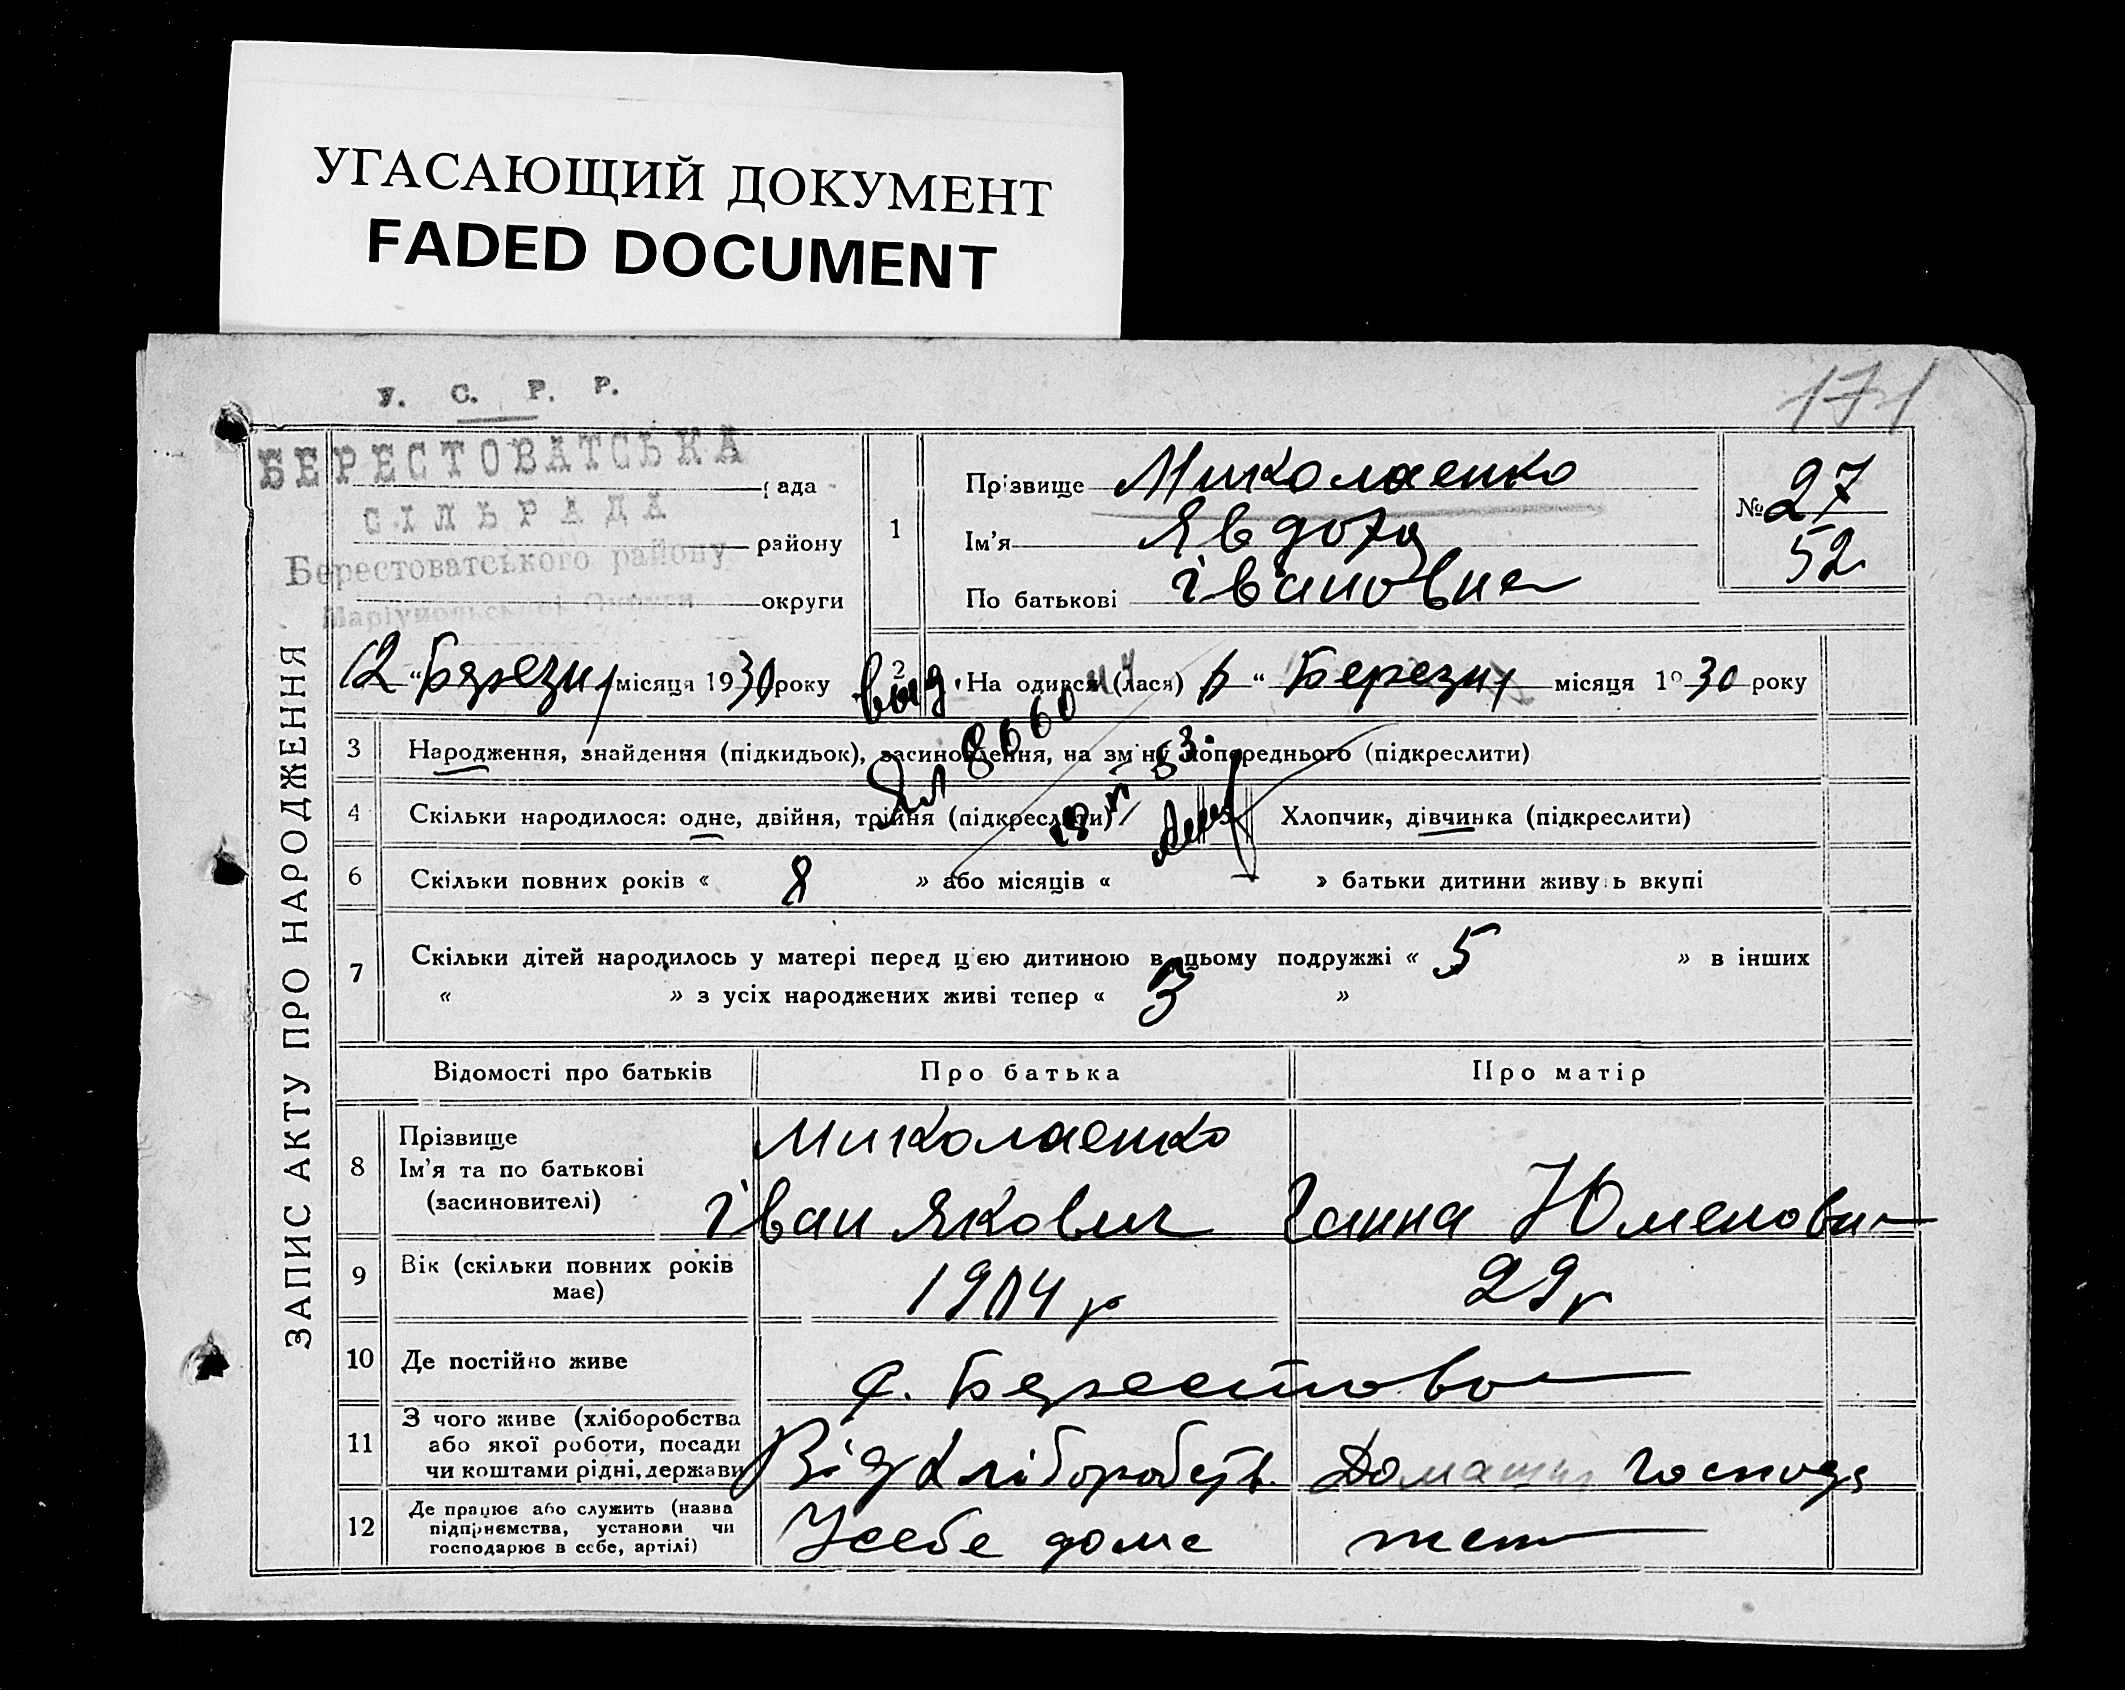 УГАСАЮЩИЙ ДОКУМЕНТ
FADED DOCUMENT
171
У. С. Р. Р.
БЕРЕСТОВАТСЬКА
рада
СІЛЬРАДА
району
Берестоватського району
округи
Маріупольської Округи
12 "Березня місяця 1930 року
ЗАПИС АКТУ ПРО НАРОДЖЕННЯ
1 Прізвище Миколаенко
Ім'я Явдоха
По батькові Івановна
№ 27
52
2 На одився (лася) 6 " Березня місяця 1930 року
выд.
3 Народження, знайдення (підкидьок), засиновлення, на зміну попереднього (підкреслити)
4 Скільки народилося: одне, двійня, трійня (підкреслити) Хлопчик, дівчинка (підкреслити)
6 Скільки повних років « 8 » або місяців « » батьки дитини живуть вкупі
7 Скільки дітей народилось у матері перед цією дитиною в цьому подружжі « 5 » в інших
« » з усіх народжених живі тепер « 3 »
Відомості про батьків Про батька Про матір
8 Прізвище
Ім'я та по батькові
(засиновителі)
Миколаенко
Іван Якович Ганна
9 Вік (скільки повних років
має)
1904 р 29 р
10 Де постійно живе
с. Берестово
11 З чого живе (хліборобства
або якої роботи, посади
чи коштами рідні, держави
Від Хлиборобств. Домашня господ
12 Де працює або служить (назва
підприємства, установи чи
господарює в себе, артілі)
У себе дома теж